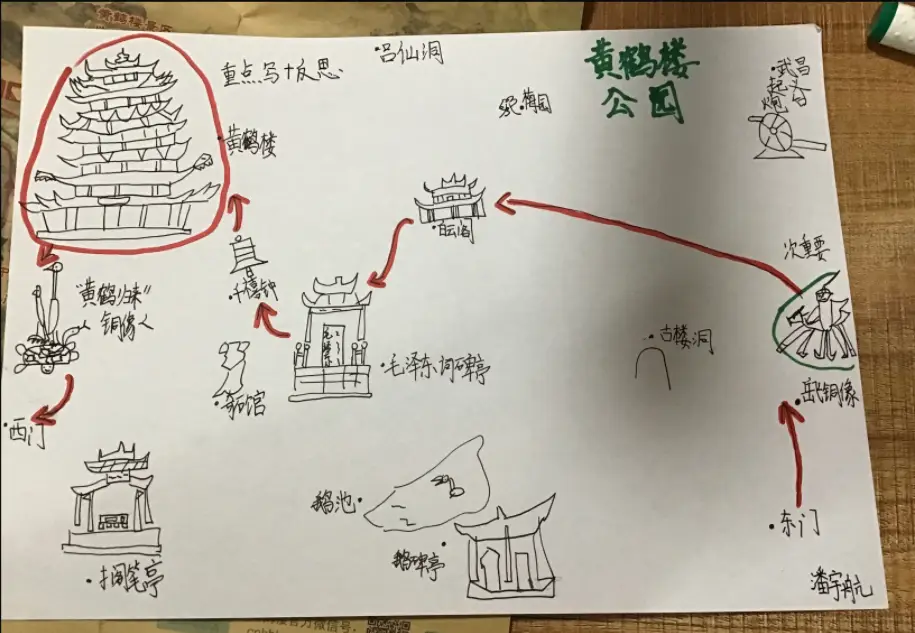 黄鹤楼
公园
吕仙洞
重点写+反思
黄鹤楼
梅园
武昌
起义
炮
白云阁
次重要
千禧钟
"黄鹤归来"
铜像
古楼洞
毛泽东词碑亭
奇石馆
岳飞铜像
西门
鹅池
东门
鹅碑亭
搁笔亭
潘宇航
官方微信号: